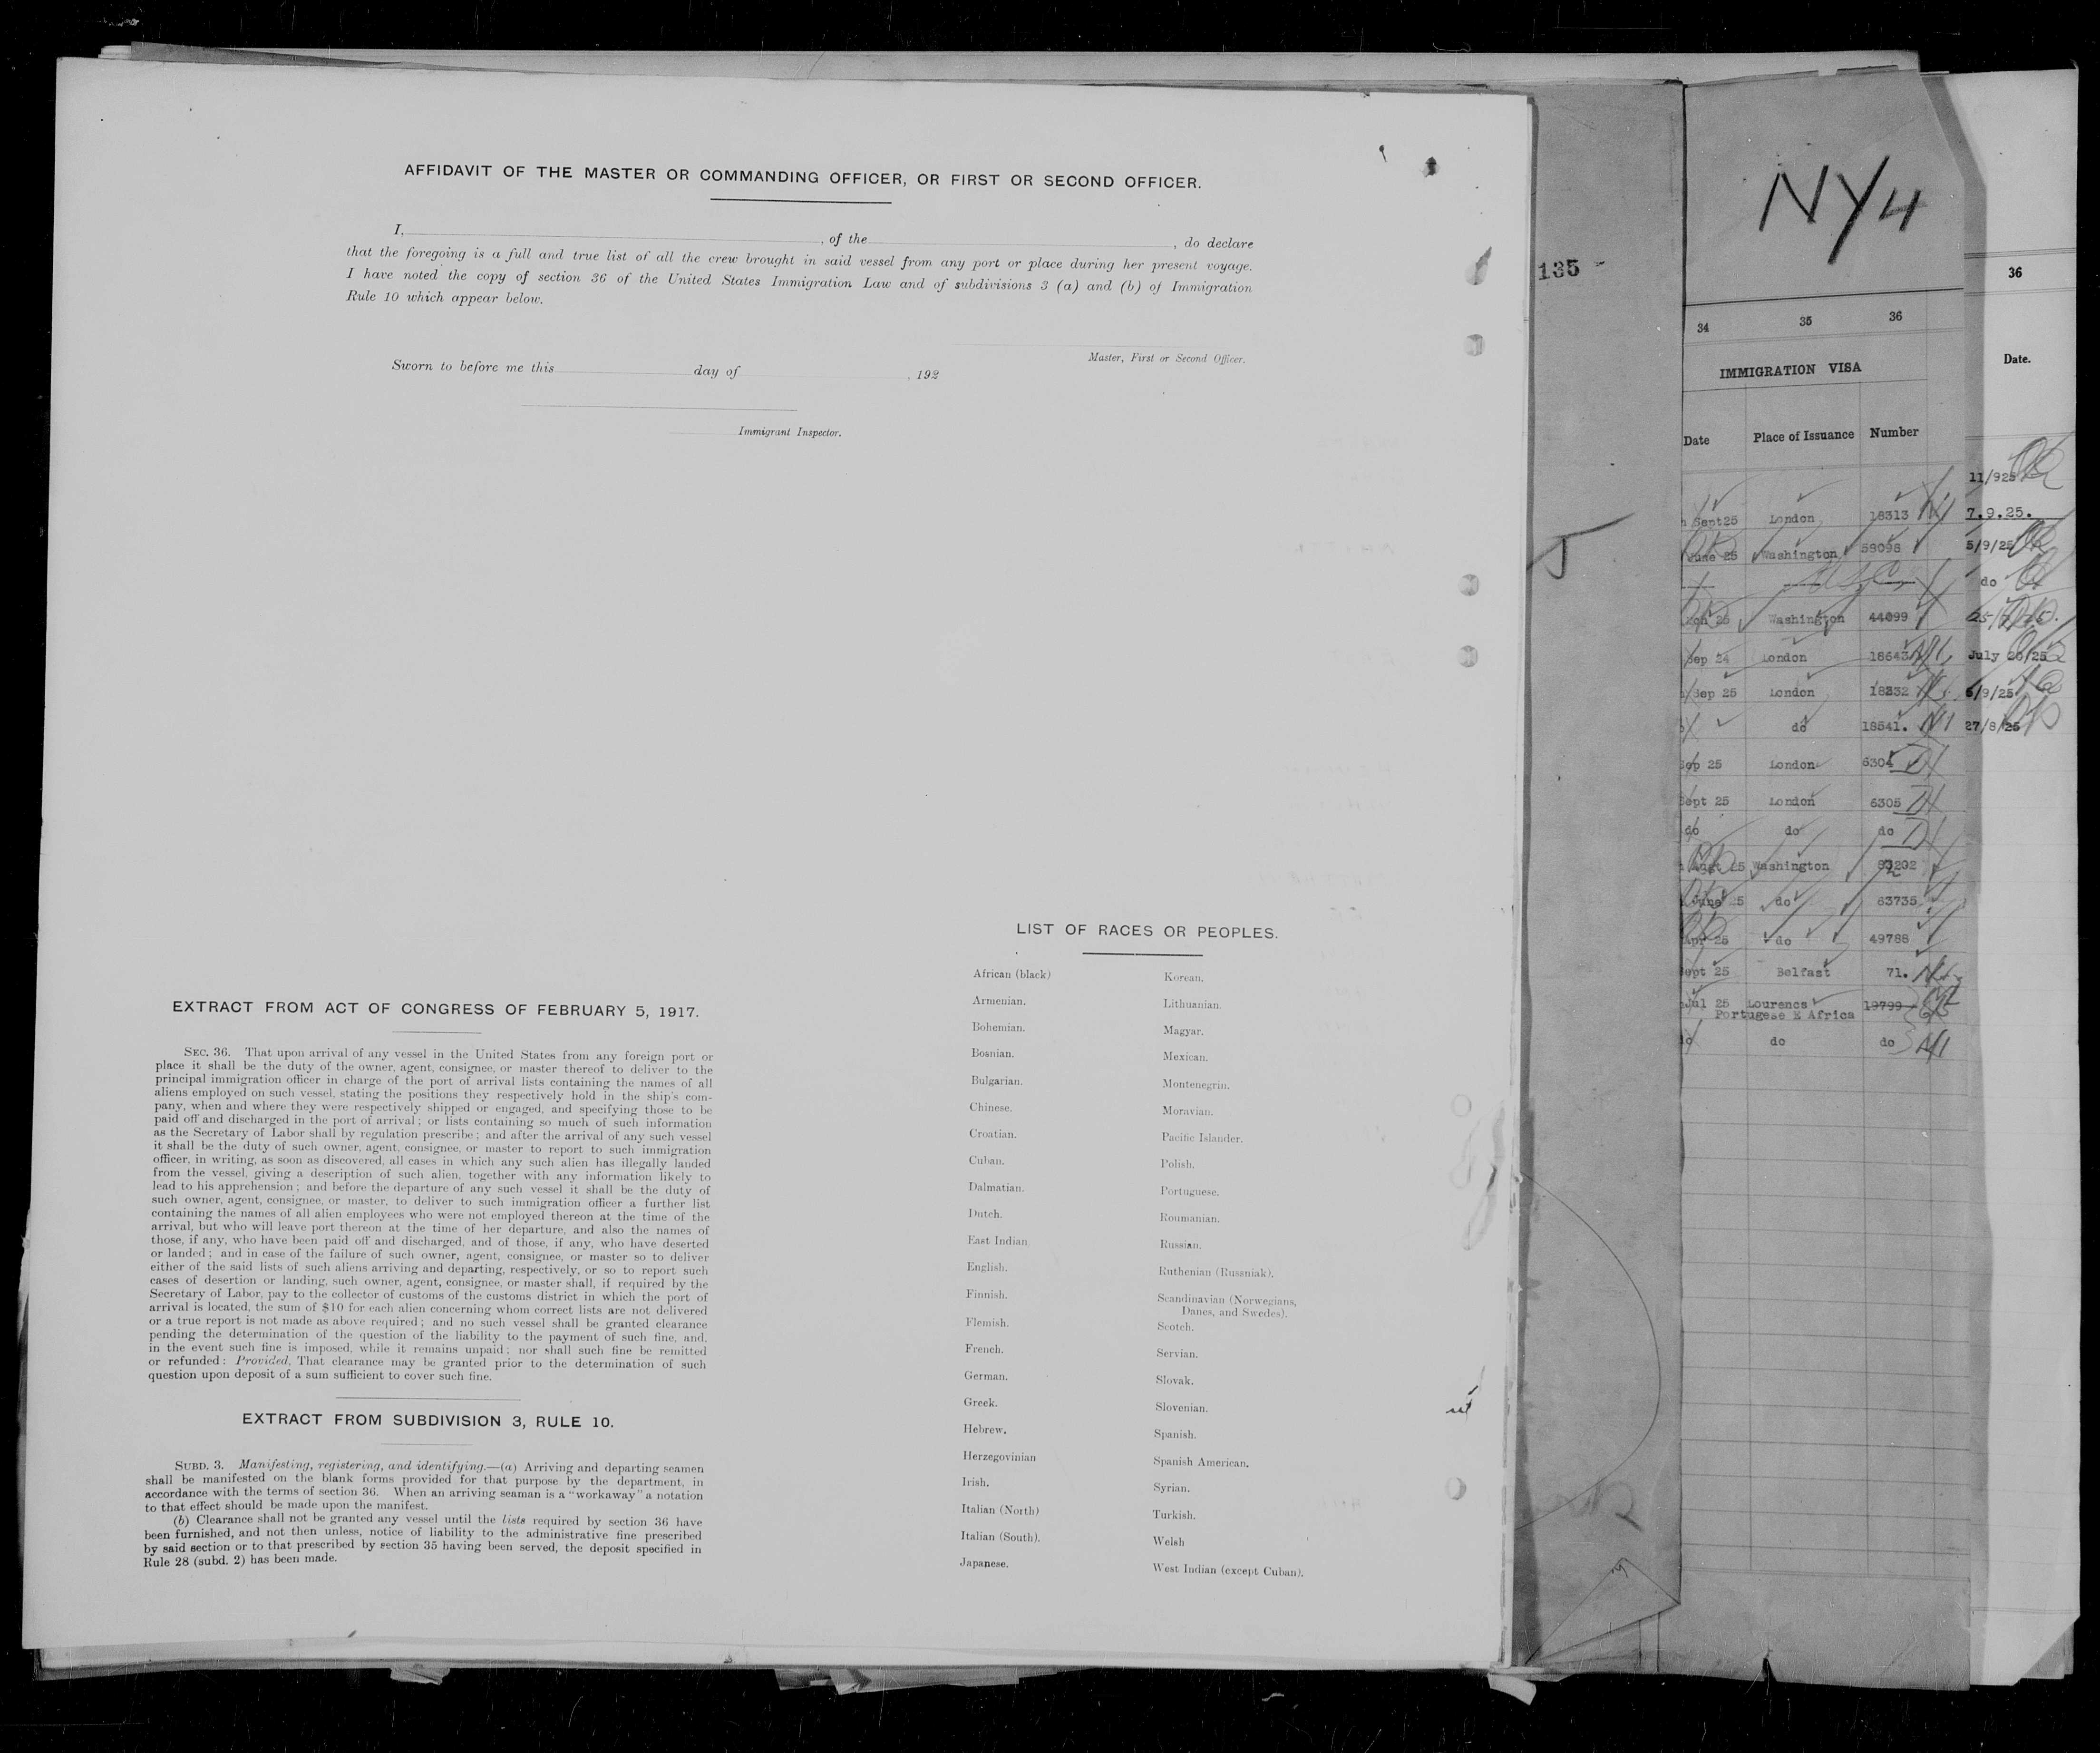 AFFIDAVIT OF THE MASTER OR COMMANDING OFFICER, OR FIRST OR SECOND OFFICER.
I, , of the , do declare
that the foregoing is a full and true list of all the crew brought in said vessel from any port or place during her present voyage.
I have noted the copy of section 36 of the United States Immigration Law and of subdivisions 3 (a) and (b) of Immigration
Rule 10 which appear below.
Master, First or Second Officer.
Sworn to before me this day of , 192
Immigrant Inspector.
EXTRACT FROM ACT OF CONGRESS OF FEBRUARY 5, 1917.
SEC. 36. That upon arrival of any vessel in the United States from any foreign port or
place it shall be the duty of the owner, agent, consignee, or master thereof to deliver to the
principal immigration officer in charge of the port of arrival lists containing the names of all
aliens employed on such vessel, stating the positions they respectively hold in the ship's com-
pany, when and where they were respectively shipped or engaged, and specifying those to be
paid off and discharged in the port of arrival; or lists containing so much of such information
as the Secretary of Labor shall by regulation prescribe; and after the arrival of any such vessel
it shall be the duty of such owner, agent, consignee, or master to report to such immigration
officer, in writing, as soon as discovered, all cases in which any such alien has illegally landed
from the vessel, giving a description of such alien, together with any information likely to
lead to his apprehension; and before the departure of any such vessel it shall be the duty of
such owner, agent, consignee, or master, to deliver to such immigration officer a further list
containing the names of all alien employees who were not employed thereon at the time of the
arrival, but who will leave port thereon at the time of her departure, and also the names of
those, if any, who have been paid off and discharged, and of those, if any, who have deserted
or landed; and in case of the failure of such owner, agent, consignee, or master so to deliver
either of the said lists of such aliens arriving and departing, respectively, or so to report such
cases of desertion or landing, such owner, agent, consignee, or master shall, if required by the
Secretary of Labor, pay to the collector of customs of the customs district in which the port of
arrival is located, the sum of $10 for each alien concerning whom correct lists are not delivered
or a true report is not made as above required; and no such vessel shall be granted clearance
pending the determination of the question of the liability to the payment of such fine, and,
in the event such fine is imposed, while it remains unpaid; nor shall such fine be remitted
or refunded: Provided, That clearance may be granted prior to the determination of such
question upon deposit of a sum sufficient to cover such fine.
EXTRACT FROM SUBDIVISION 3, RULE 10.
SUBD. 3. Manifesting, registering, and identifying.—(a) Arriving and departing seamen
shall be manifested on the blank forms provided for that purpose by the department, in
accordance with the terms of section 36. When an arriving seaman is a "workaway" a notation
to that effect should be made upon the manifest.
(b) Clearance shall not be granted any vessel until the lists required by section 36 have
been furnished, and not then unless, notice of liability to the administrative fine prescribed
by said section or to that prescribed by section 35 having been served, the deposit specified in
Rule 28 (subd. 2) has been made.
LIST OF RACES OR PEOPLES.
African (black)
Armenian.
Bohemian.
Bosnian.
Bulgarian.
Chinese.
Croatian.
Cuban.
Dalmatian.
Dutch.
East Indian
English.
Finnish.
Flemish.
French.
German.
Greek.
Hebrew.
Herzegovinian
Irish.
Italian (North)
Italian (South).
Japanese.
Korean.
Lithuanian.
Magyar.
Mexican.
Montenegrin.
Moravian.
Pacific Islander.
Polish.
Portuguese.
Roumanian.
Russian.
Ruthenian (Russniak).
Scandinavian (Norwegians,
Danes, and Swedes).
Scotch.
Servian.
Slovak.
Slovenian.
Spanish.
Spanish American.
Syrian.
Turkish.
Welsh
West Indian (except Cuban).
135
NY4
34 35 36
IMMIGRATION VISA
Date Place of Issuance Number
Sept 25 London 18313
June 25 Washington 59098
25 Washington 44099
Sep 24 London 18643
Sep 25 London 18332
do 18541.
Sep 25 London 6304
Sept 25 London 6305
do do do
25 Washington 83202
June 25 do 63735
Apr 25 do 49788
Sept 25 Belfast 71.
Jul 25 Lourencs 19799
Portugese E Africa
do do
36
Date.
11/925
7.9.25.
5/9/25
do
July 20/25
6/9/25
27/8/25